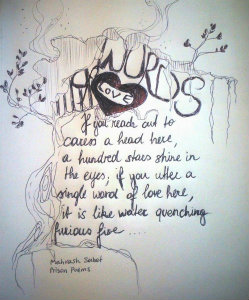 WORDS
LOVE
If you reach out to
caress a head here,
a hundred stars shine in
the eyes; if you utter a
single word of love here,
it is like water quenching
furious fire ....
Mahvash Sabet
Prison Poems